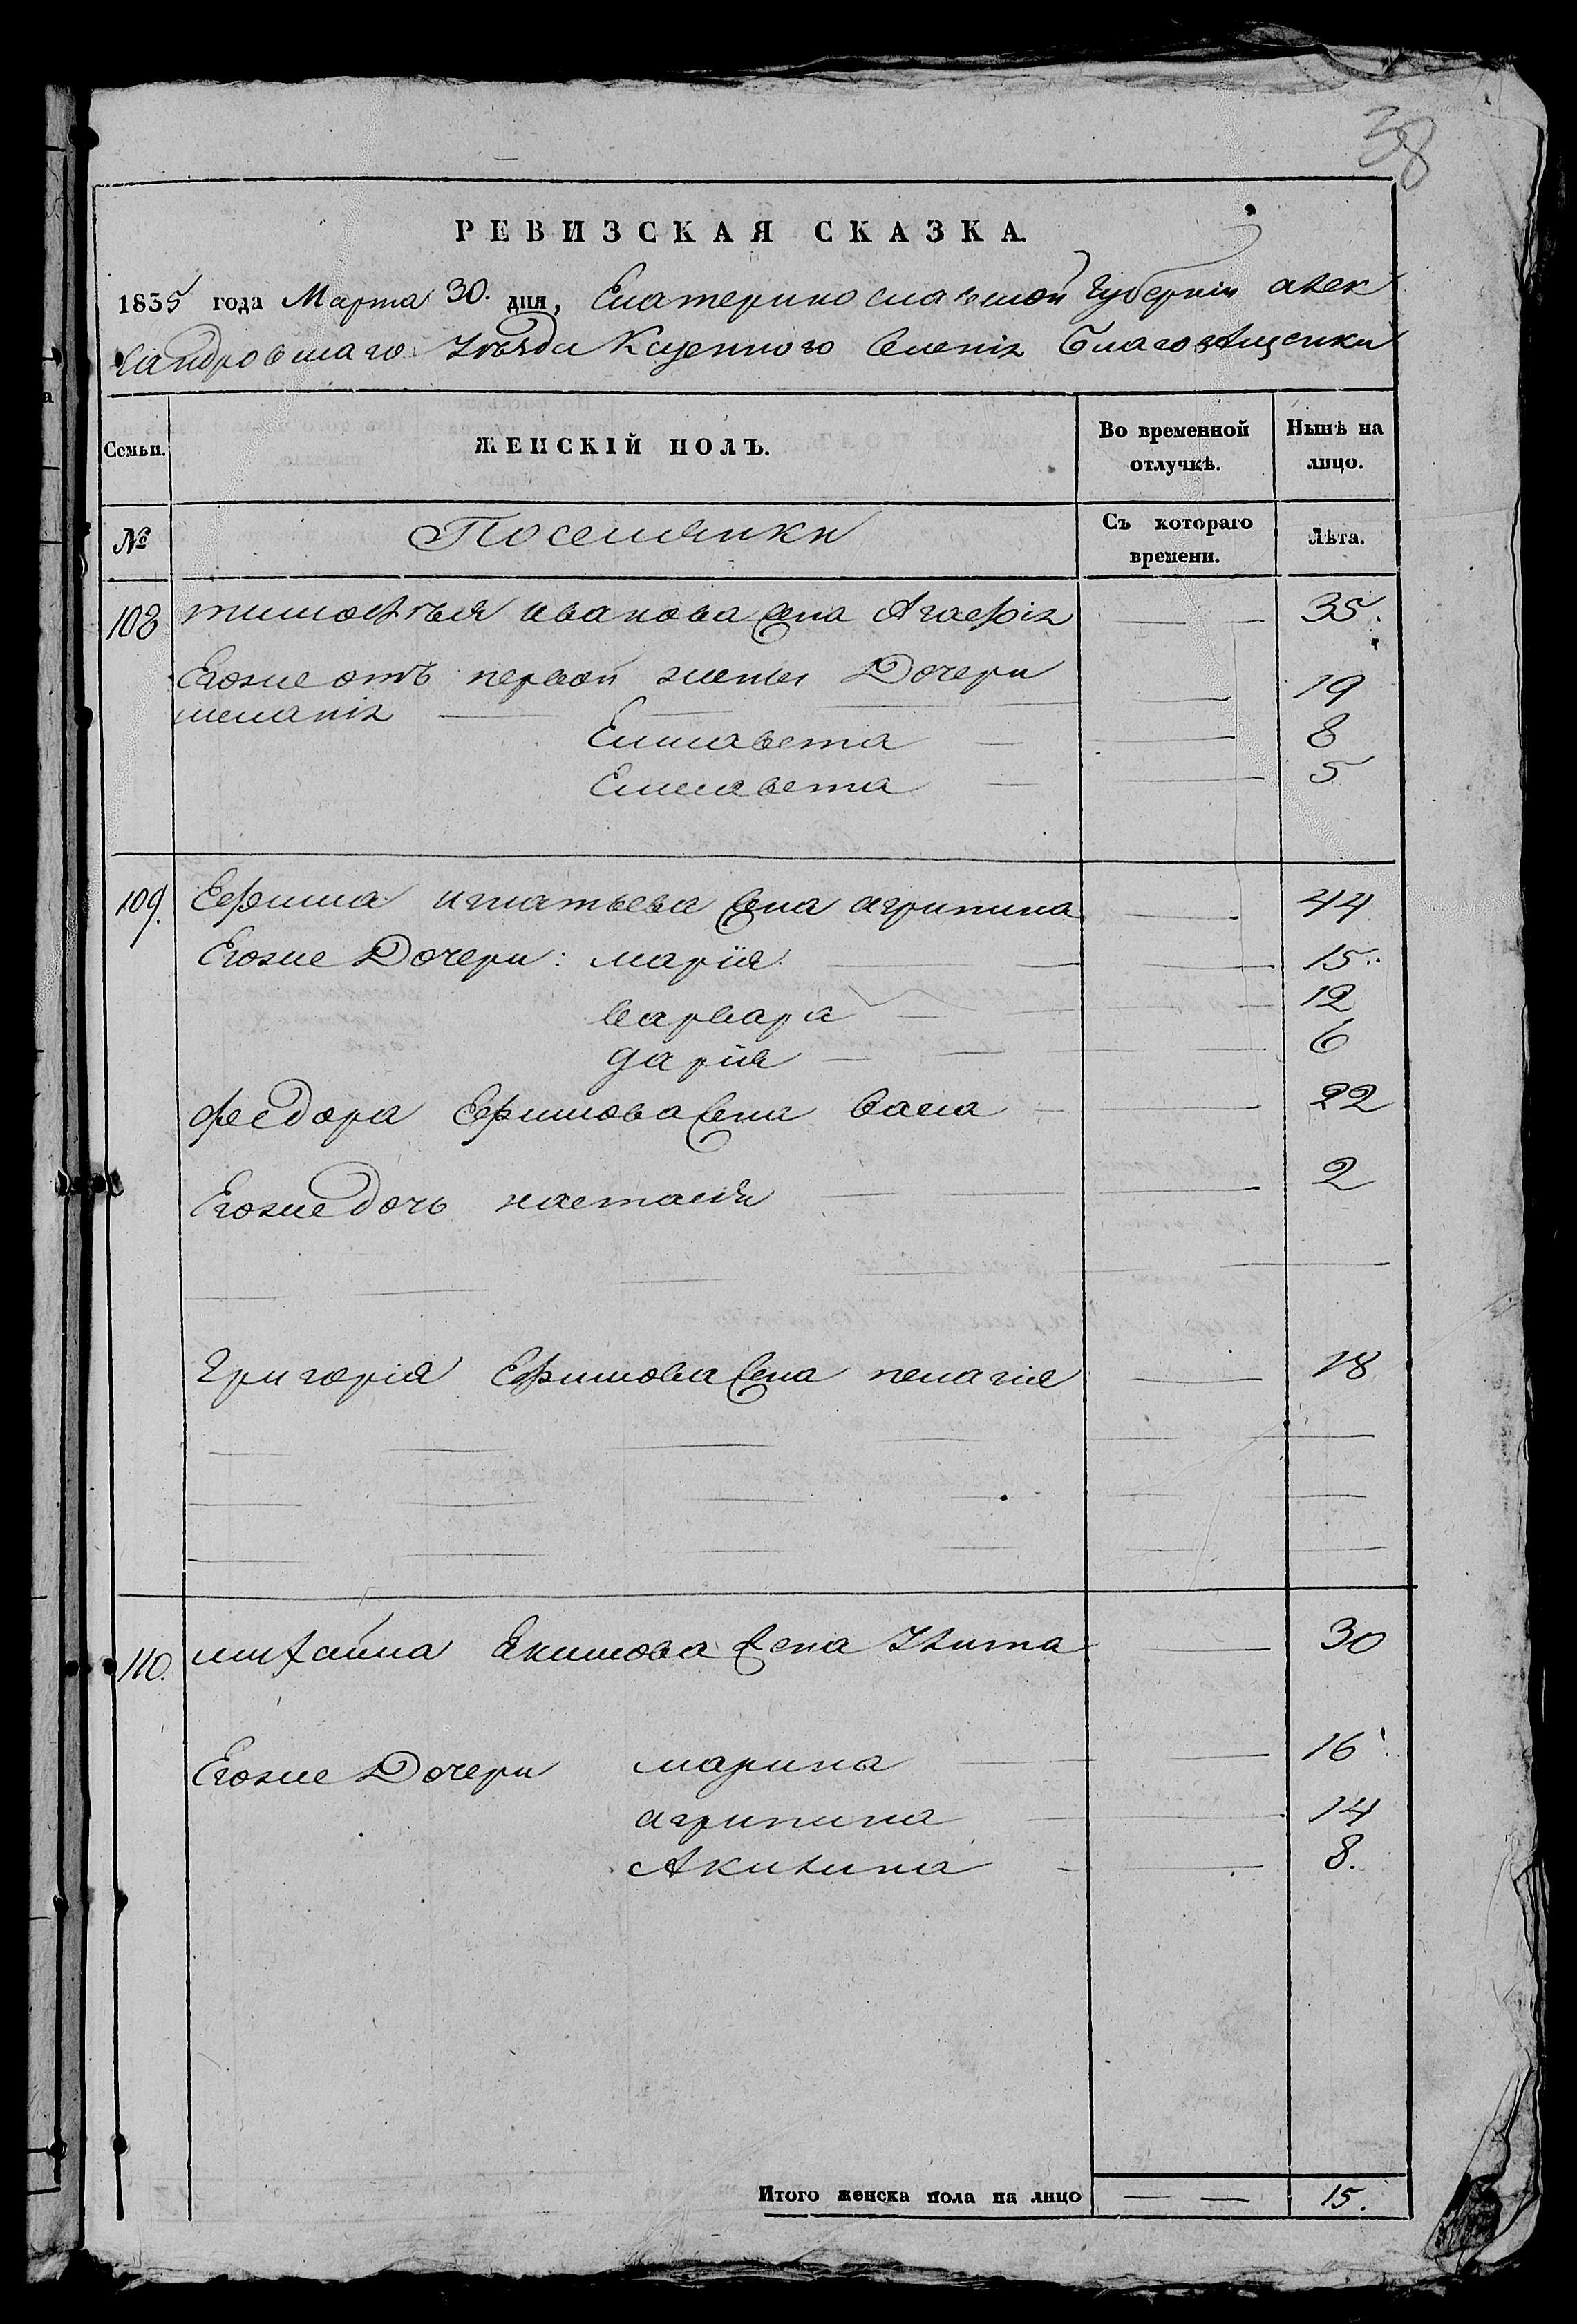 38
РЕВИЗСКАЯ СКАЗКА.
1835 года Марта 30. дня, Екатеринославской Губерніи алек
сандровскаго Уѣзда Казенного Селенія Благовѣщенки
Семьи. ЖЕНСКІЙ ПОЛЪ. Во временной отлучкѣ. Нынѣ на лицо.
№ Поселянки Съ котораго времени. Лѣта.
108 тимофѣя иванова жена Агафія — 35.
Егоже отъ первой жены Дочери
меланія — 19
Елисавета — 8
Елисавета — 5
109. Ефима игнатьева жена агрипина — 44
Егоже Дочери: марія — 15.
варвара — 12
дарія — 6
федора Ефимова жена васса — 22
Егоже дочь настасія — 2
Григорія Ефимова жена пелагія — 18
110. михайла Екимова жена Улита — 30
Егоже Дочери марина — 16
агрипина — 14
Акилина — 8.
Итого женска пола на лицо — — 15.